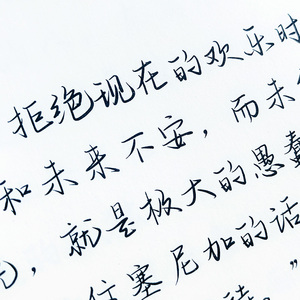 拒绝现在的欢乐时
和未来不安，而未
，就是极大的愚蠢
塞尼加的话